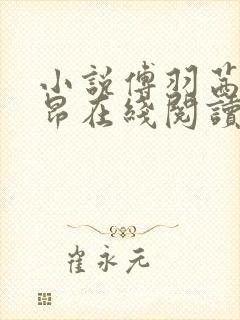 小說傅羽茜
昂在綫閱讀
崔永元